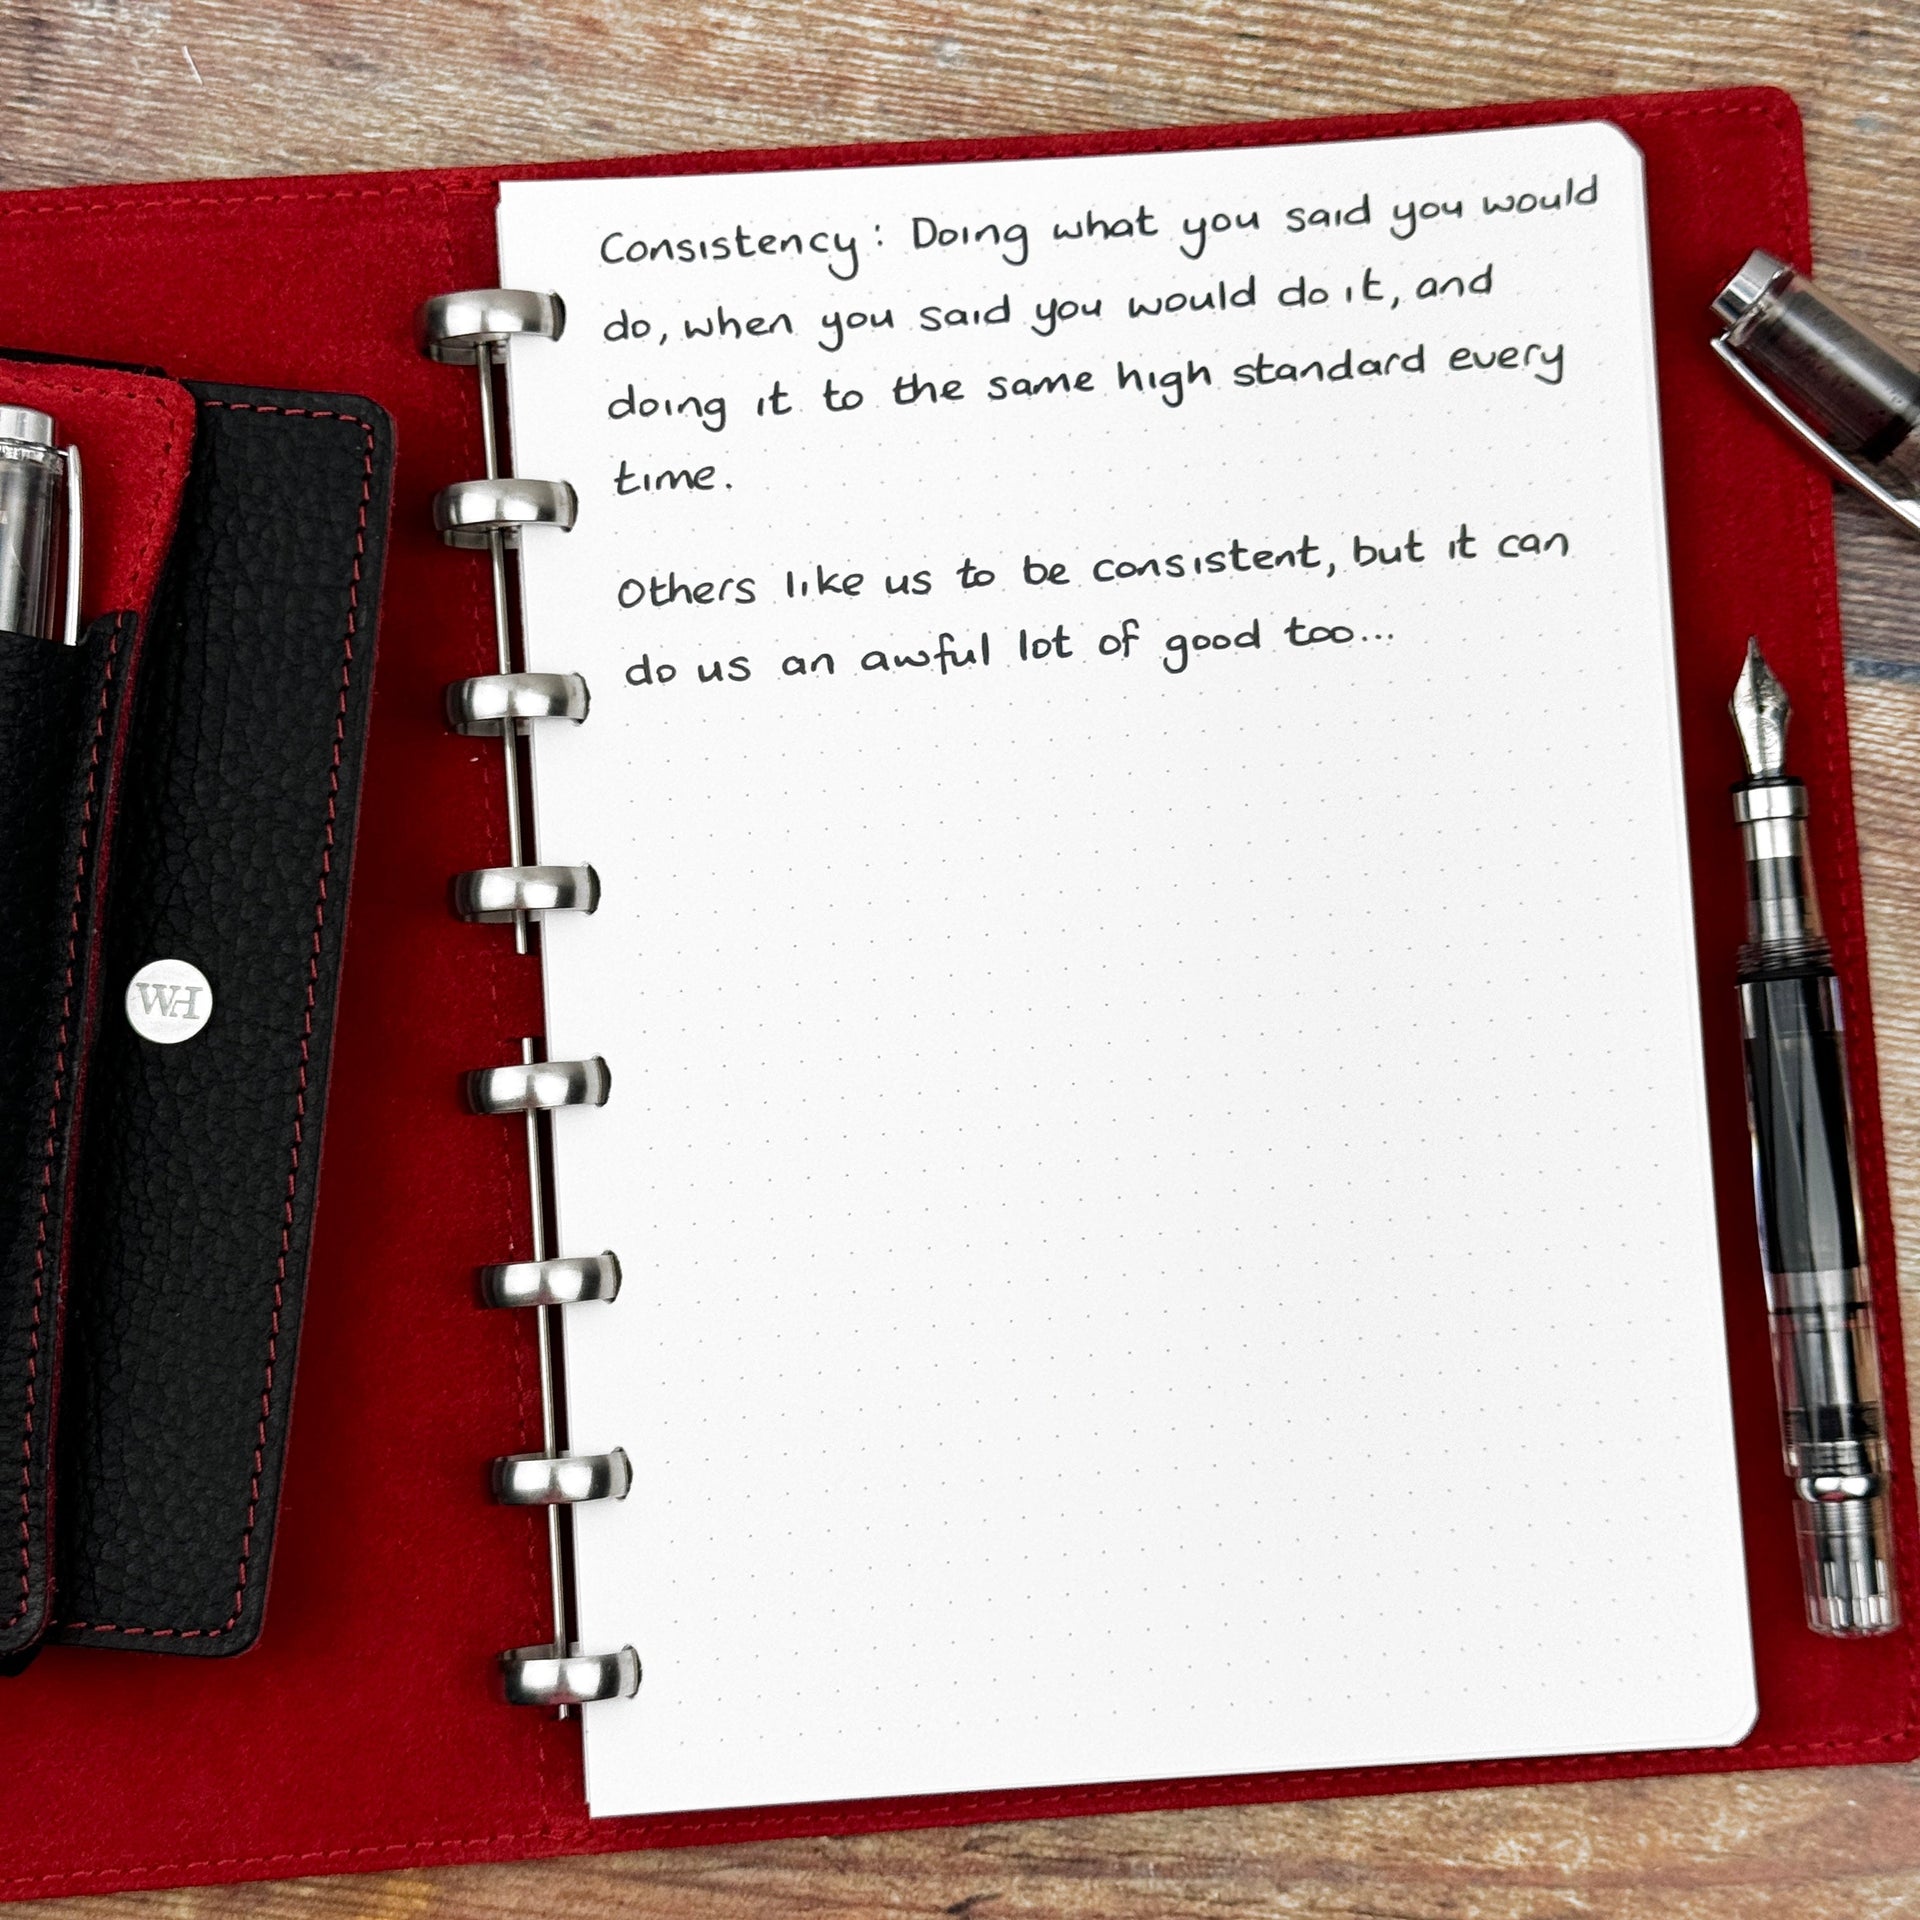 Consistency: Doing what you said you would
do, when you said you would do it, and
doing it to the same high standard every
time.
Others like us to be consistent, but it can
do us an awful lot of good too...
WH